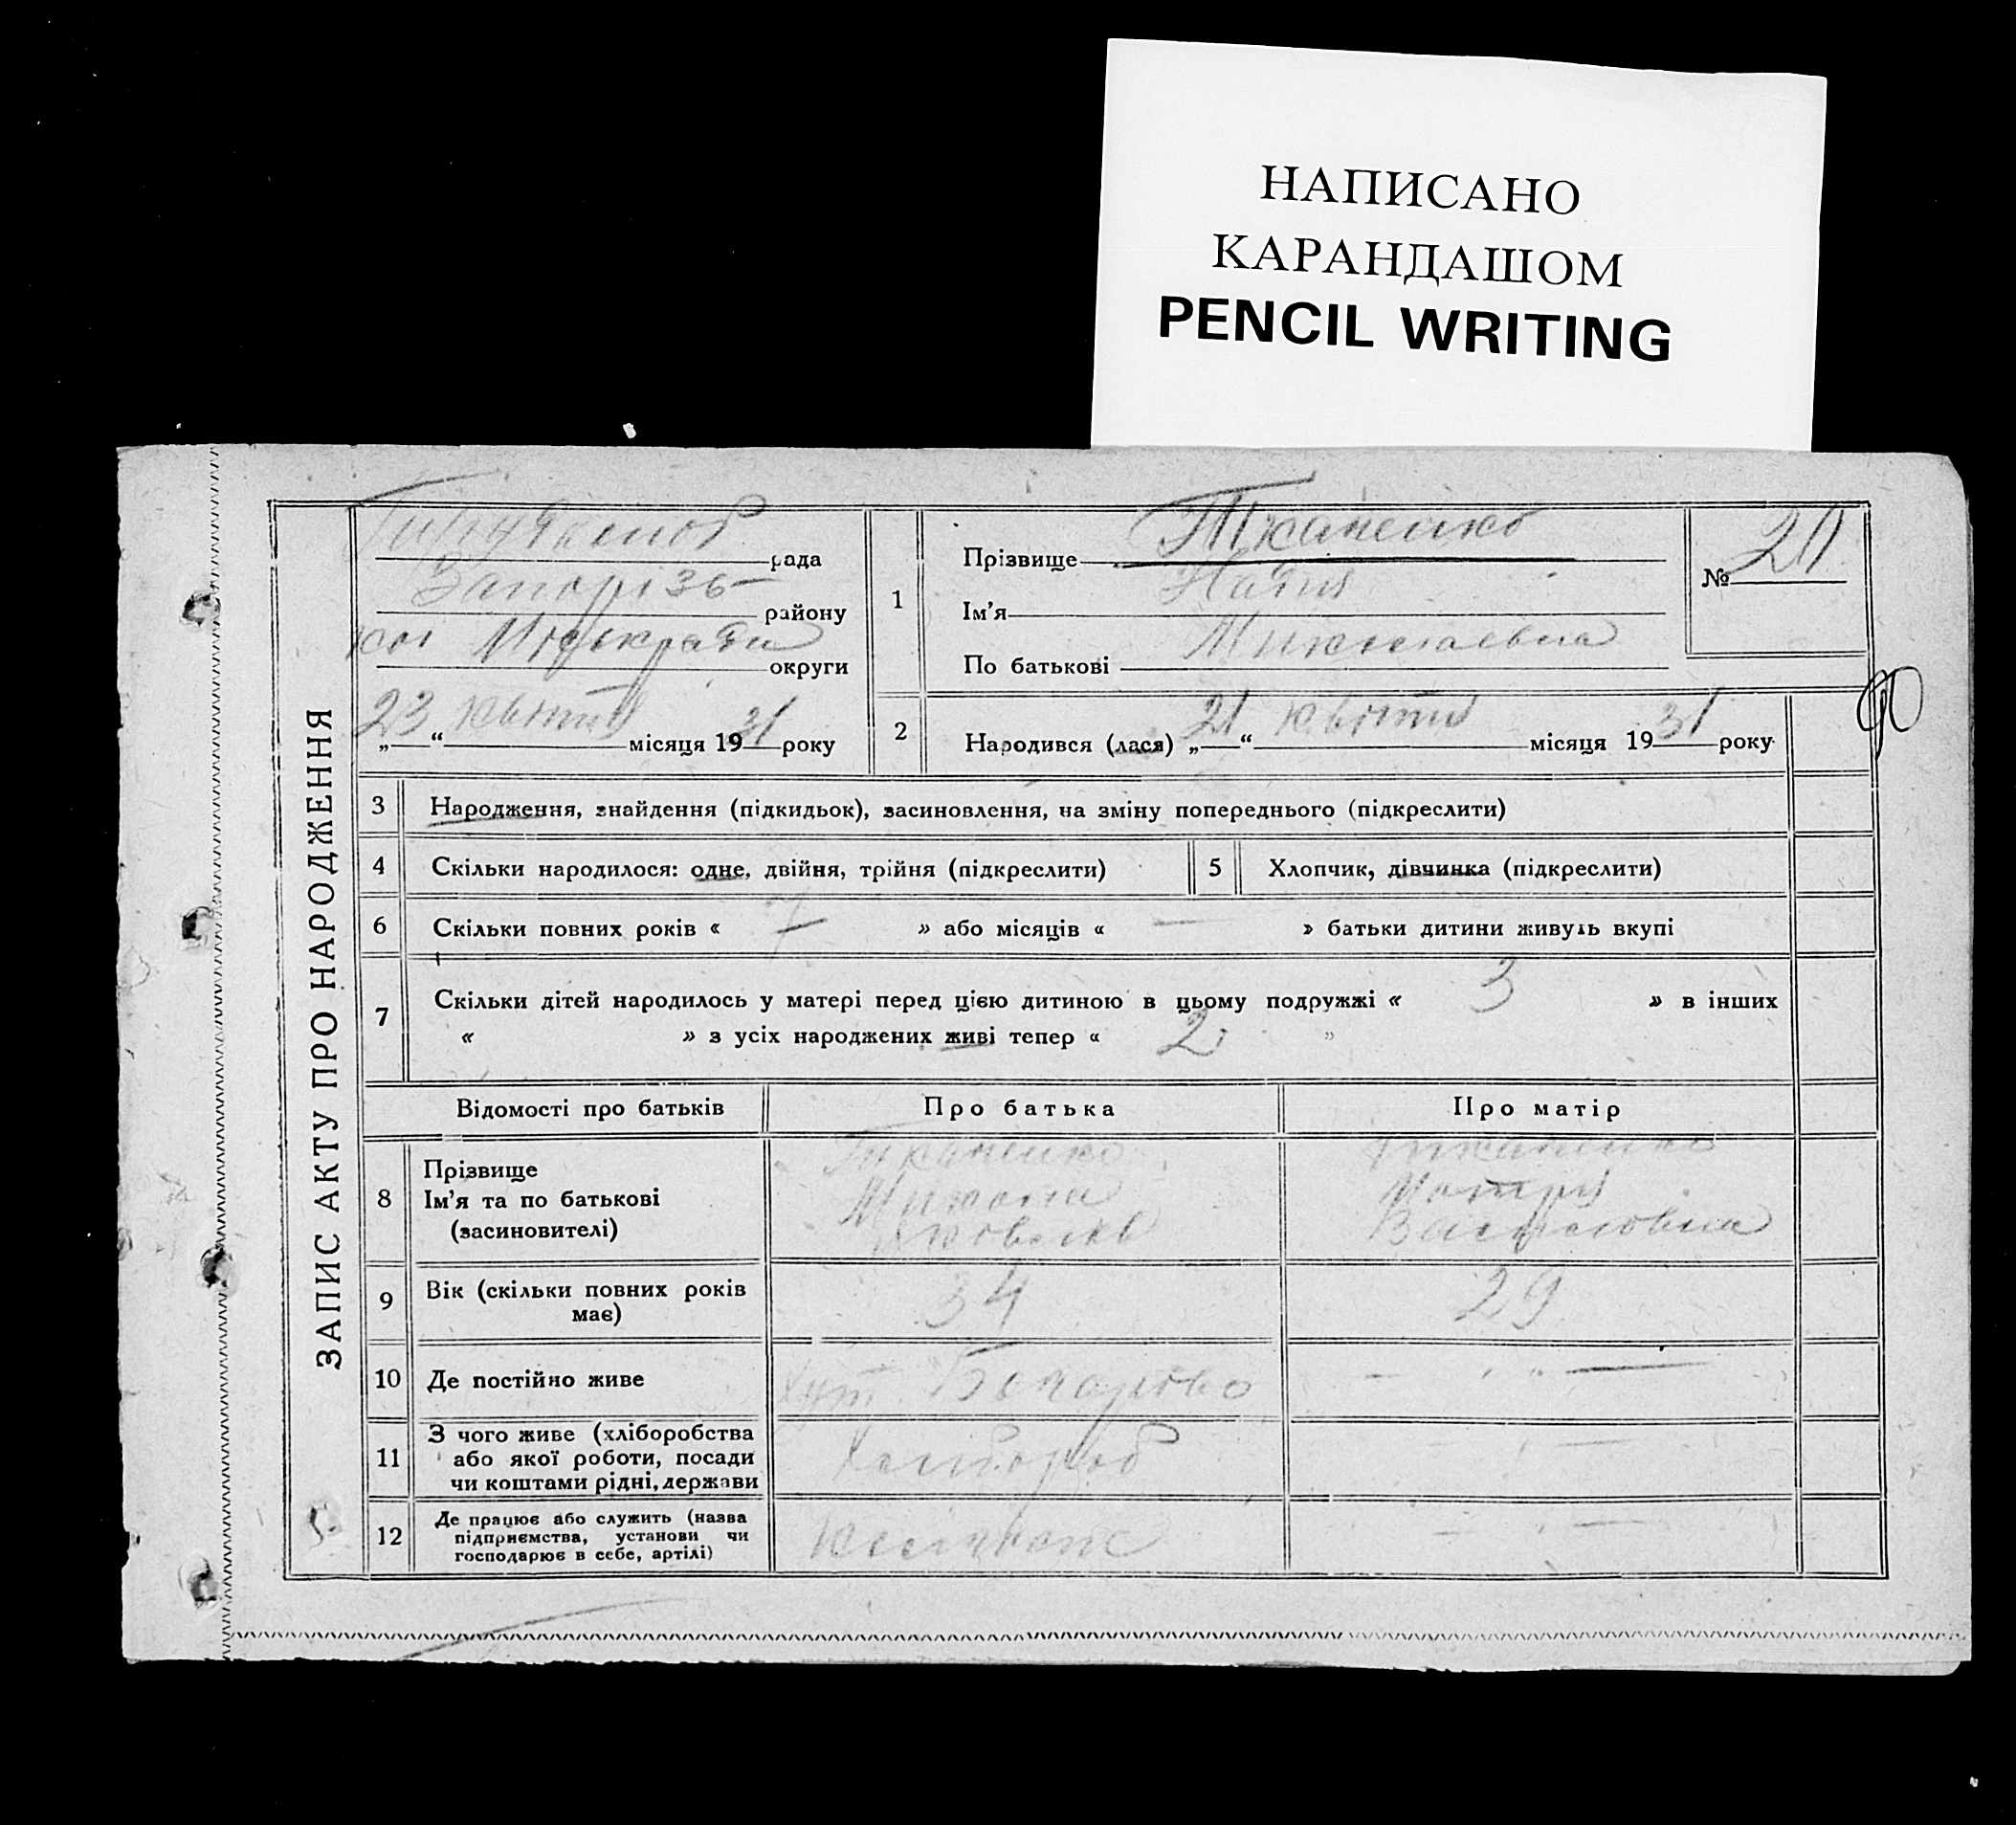 НАПИСАНО
КАРАНДАШОМ
PENCIL WRITING
ЗАПИС АКТУ ПРО НАРОДЖЕННЯ
рада
Запорізь-
району
кої Міськради
округи
„23“ квітня місяця 1931 року
1
Прізвище Ткаченко
Ім'я Надія
По батькові Миколаевна
№ 20
90
2 Народився (лася) „21“ квітня місяця 1931 року
3 Народження, знайдення (підкидьок), засиновлення, на зміну попереднього (підкреслити)
4 Скільки народилося: одне, двійня, трійня (підкреслити) 5 Хлопчик, дівчинка (підкреслити)
6 Скільки повних років « 7 » або місяців « — » батьки дитини живуть вкупі
7 Скільки дітей народилось у матері перед цією дитиною в цьому подружжі « 3 » в інших
« » з усіх народжених живі тепер « 2 »
Відомості про батьків Про батька Про матір
8 Прізвище
Ім'я та по батькові
(засиновителі)
Ткаченко
Микола
Ткаченко
Мотря
Василовна
9 Вік (скільки повних років
має)
34 29
10 Де постійно живе Хут. — „ —
11 З чого живе (хліборобства
або якої роботи, посади
чи коштами рідні, держави
Хлібороб — „ —
12 Де працює або служить (назва
підприємства, установи чи
господарює в себе, артілі)
— „ —